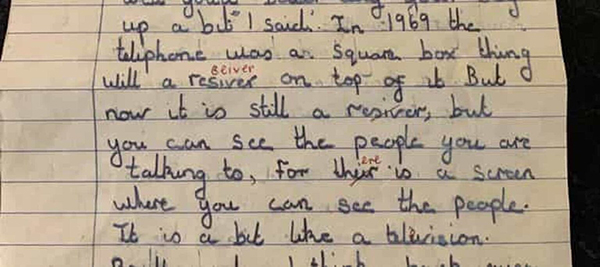 up a bit" I said. In 1969 the
teliphone was a square box thing
seiver
will a resiver on top of it But
now it is still a resiver, but
you can see the people you are
ere
talking to, for their is a screen
where you can see the people.
It is a bit like a television.